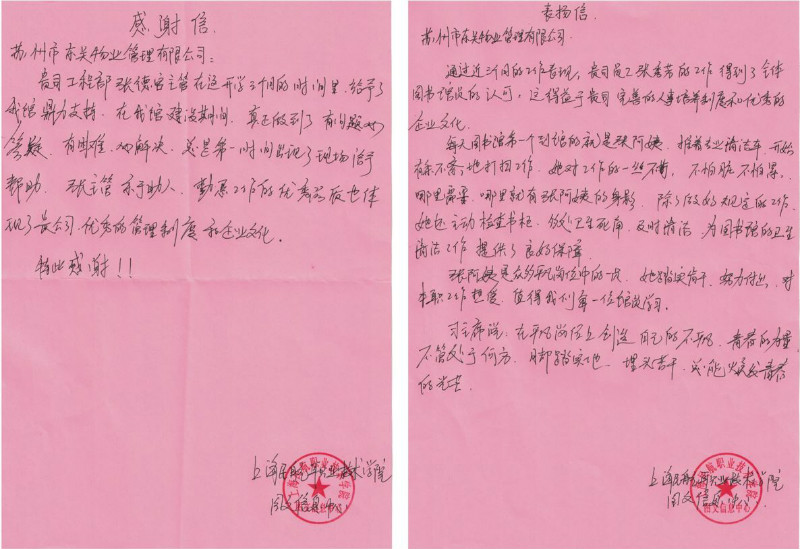 感谢信
苏州市东吴物业管理有限公司：
贵司工程部张德宝主管在这开学三个月的时间里，给予了
我馆鼎力支持，在我馆建设期间，真正做到了有问题必
答疑，有困难必解决，总是第一时间出现了现场给予
帮助，张主管乐于助人、勤恳工作的优秀品质也体
现了贵公司优秀的管理制度和企业文化。
特此感谢！！
上海民航职业技术学院
图文信息中心
表扬信
苏州市东吴物业管理有限公司.
通过近三个月的工作表现，贵司员工张秀芳的工作得到了全体
图书馆员的认可，这得益于贵司完善的人事培养制度和优秀的
企业文化。
每天图书馆第一个到馆的就是张阿姨，推着专业清洁车，开始
有条不紊地打扫工作，她对工作的一丝不苟，不怕脏不怕累，
哪里需要，哪里就有张阿姨的身影，除了做好规定的工作，
她还主动检查书柜、的处卫生死角，及时清洁，为图书馆的卫生
清洁工作提供了良好保障。
张阿姨是众多平凡岗位中的一员，她踏实肯干、努力付出、对
本职工作态度，值得我们每一位馆员学习。
习主席说：在平凡岗位上创造自己的不平凡，青春的力量
不管处于何方，用脚踏实地、埋头苦干，总能焕发青春
的光芒
上海民航职业技术学院
图文信息中心